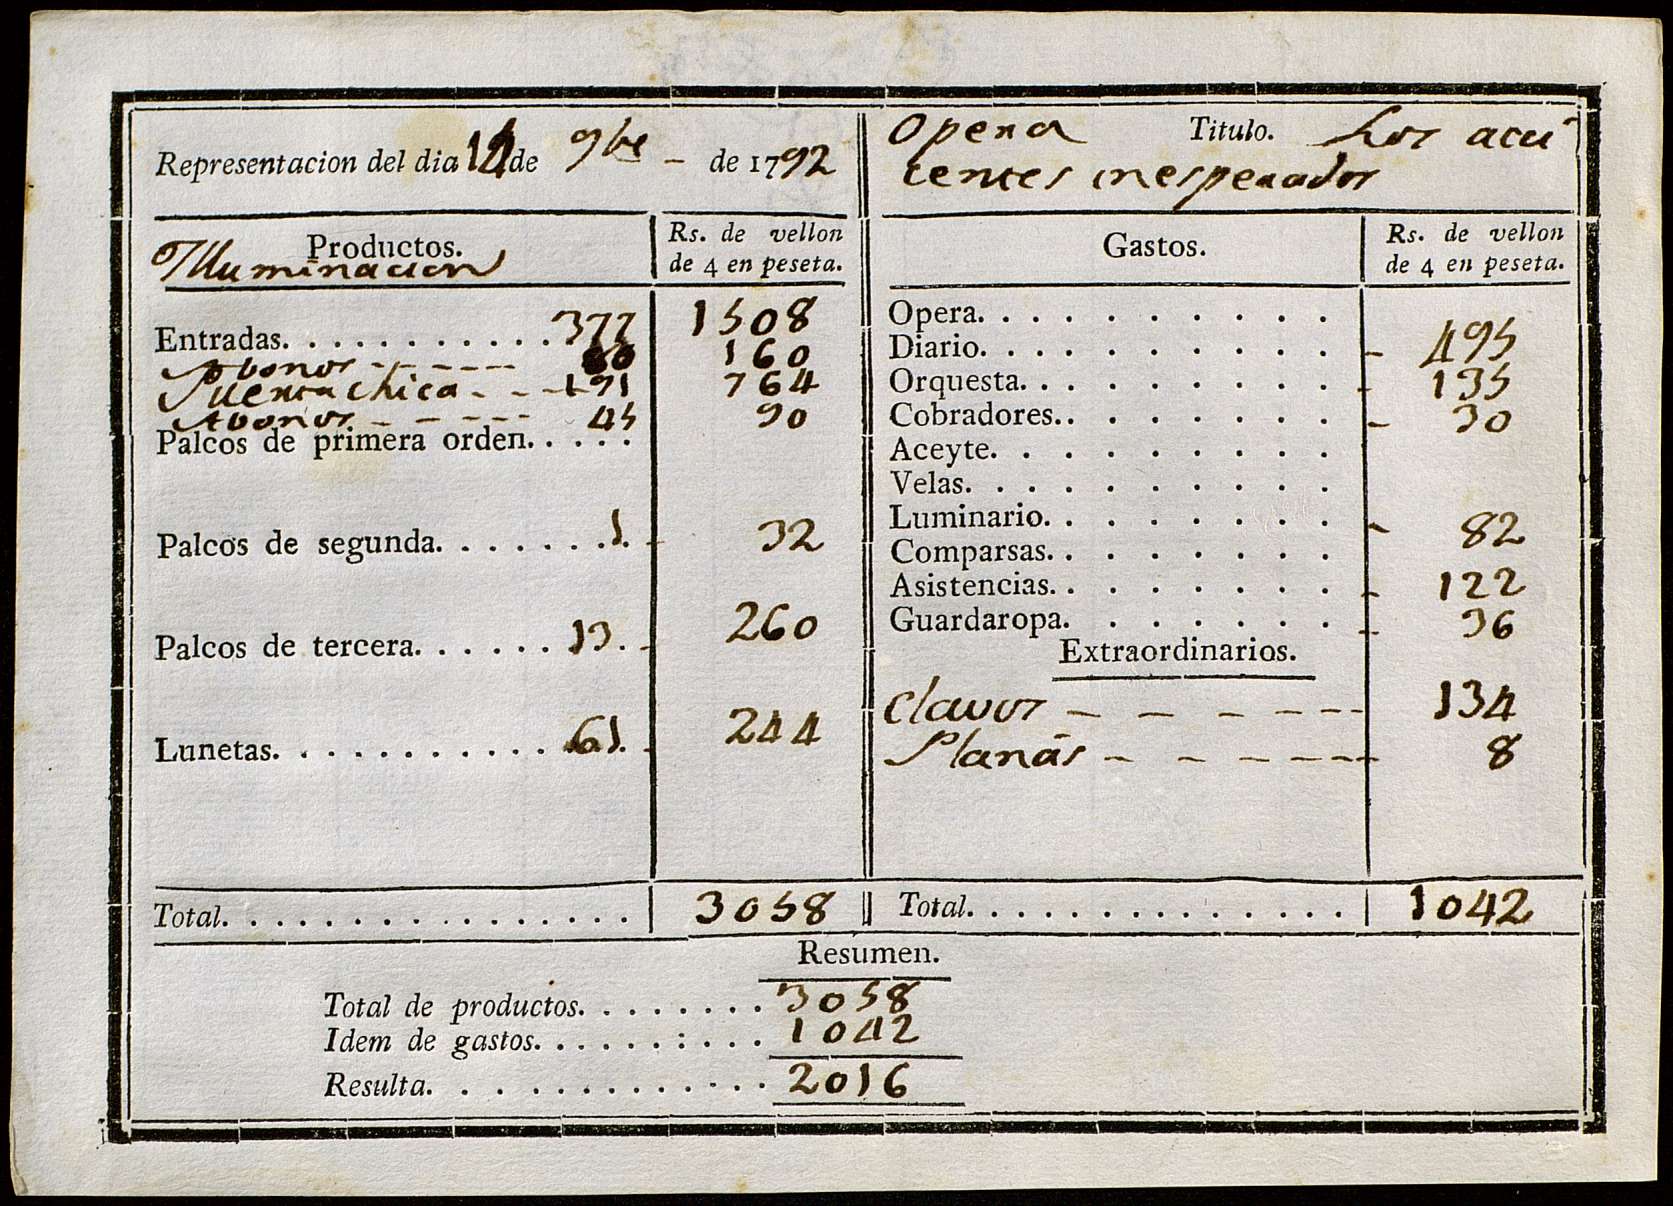 Representacion del dia 14 de 9bre - de 1792
Opera Titulo. Los acci
dentes inesperados
Productos.
Illuminacion
Rs. de vellon
de 4 en peseta.
Gastos.
Rs. de vellon
de 4 en peseta.
Entradas. 377 1508
Abonos 80 160
Puerta chica 191 764
Abonos 45 90
Palcos de primera orden.
Palcos de segunda. 1. 32
Palcos de tercera. 13. 260
Lunetas. 61. 244
Total. 3058
Opera.
Diario. 495
Orquesta. 135
Cobradores. 30
Aceyte.
Velas.
Luminario. 82
Comparsas.
Asistencias. 122
Guardaropa. 36
Extraordinarios.
Clavos 134
Planas 8
Total. 1042
Resumen.
Total de productos. 3058
Idem de gastos. 1042
Resulta. 2016